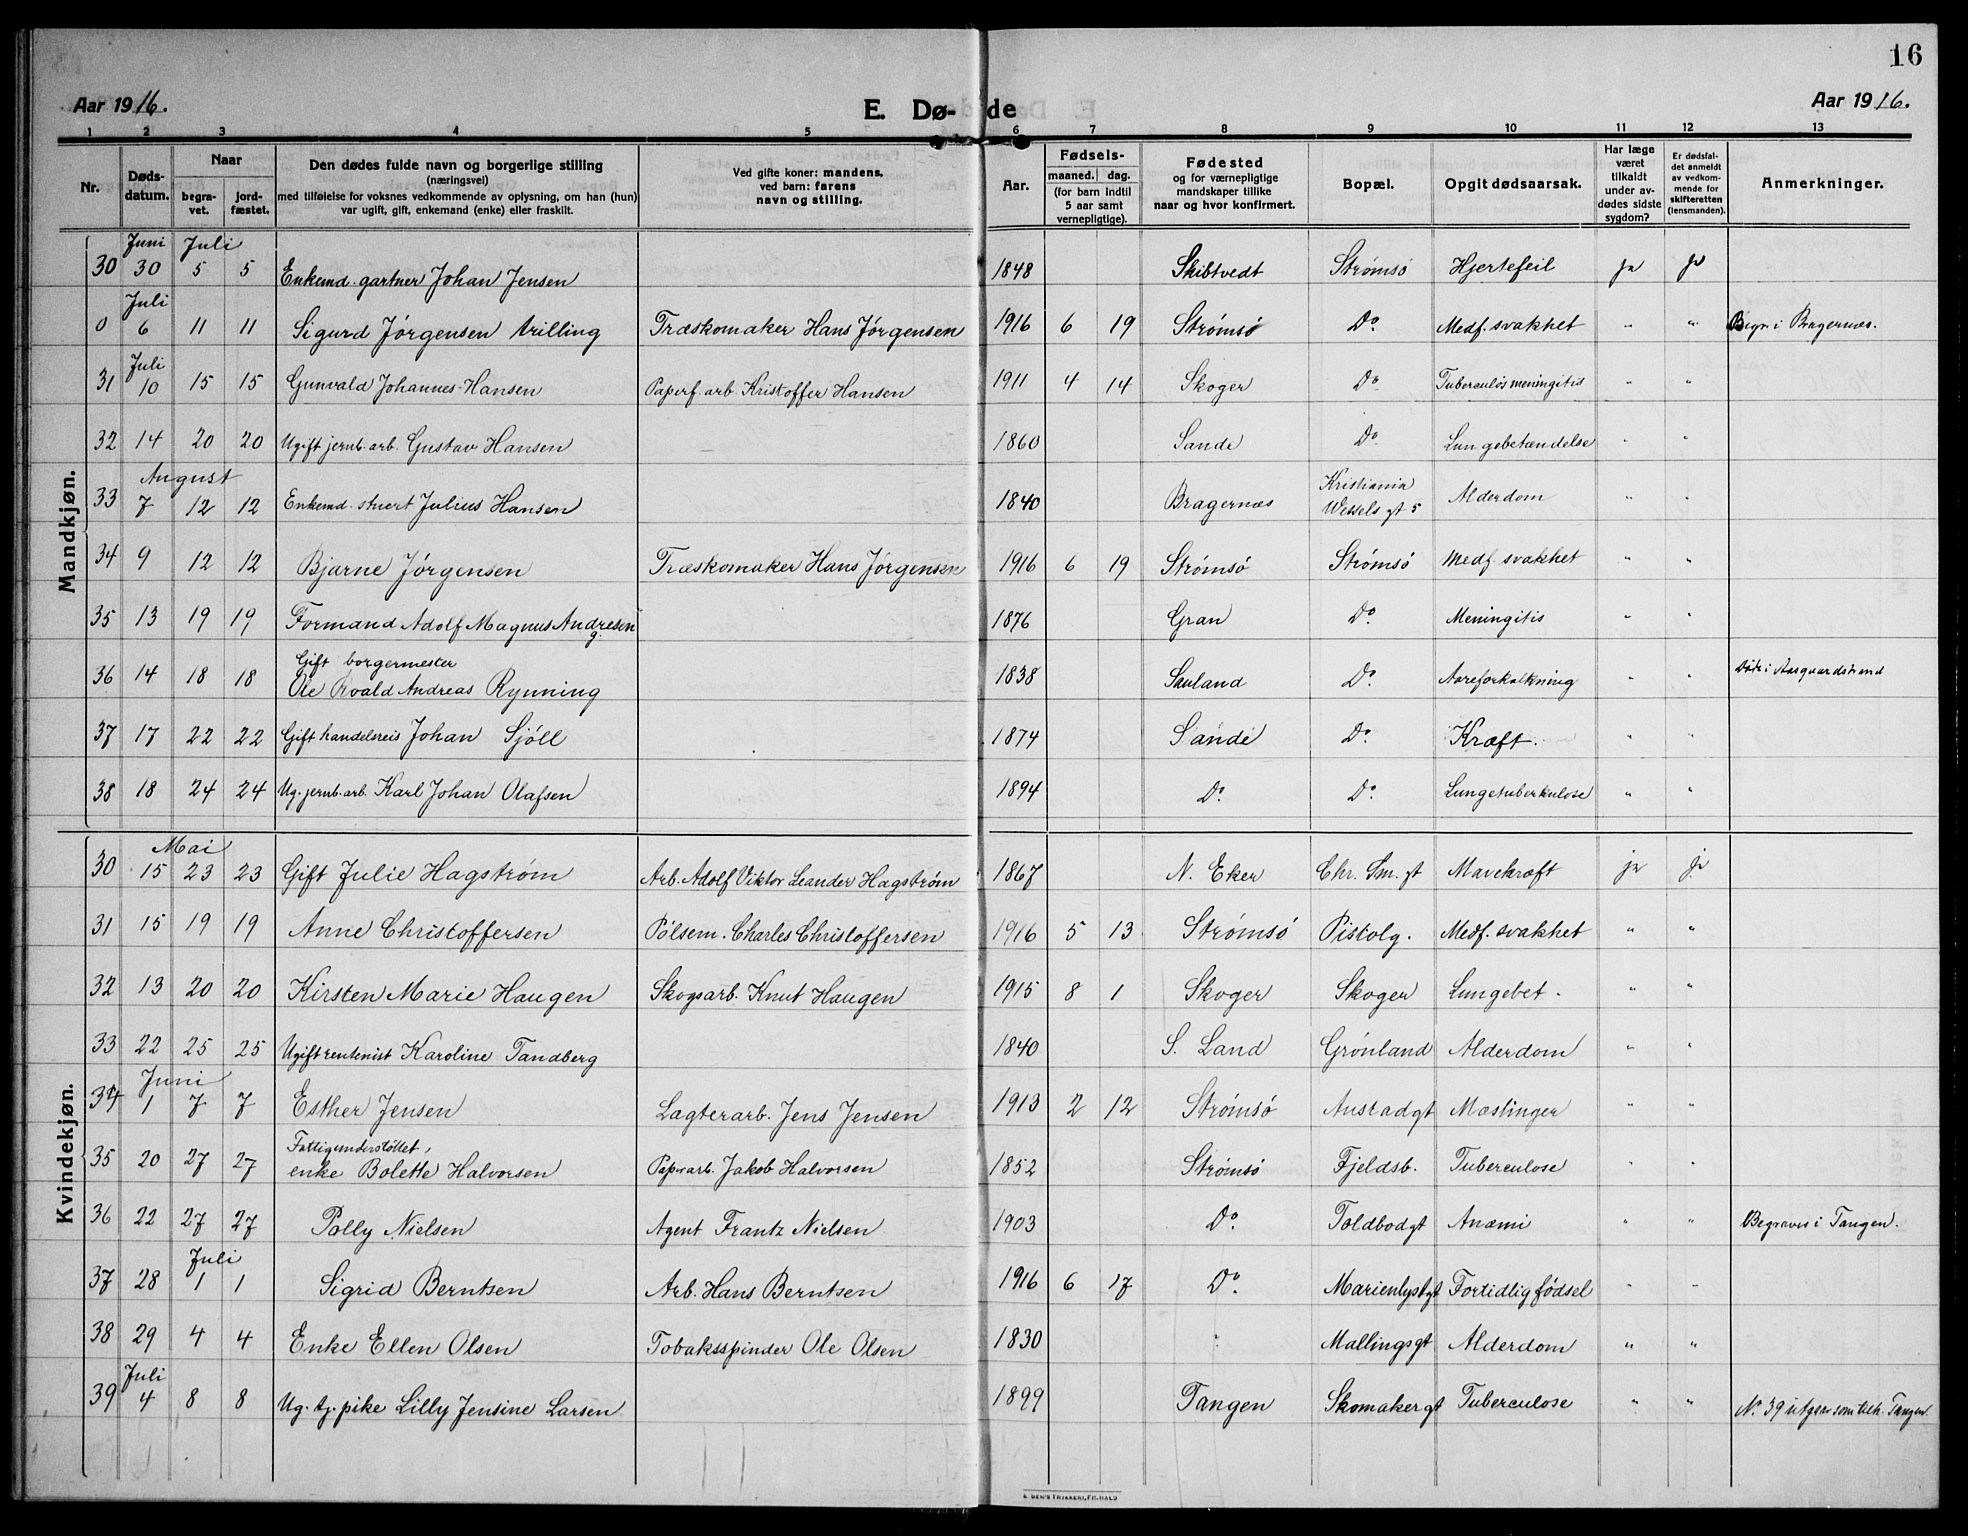 16
Aar 1916.
E. Dø-
de
Aar 1916.
1 2 3 4 5 6 7 8 9 10 11 12 13
Nr.
Døds-
datum.
Naar
begra-
vet.
jord-
fæstet.
Den dødes fulde navn og borgerlige stilling
(næringsvei)
med tilføielse for voksnes vedkommende av oplysning, om han (hun)
var ugift, gift, enkemand (enke) eller fraskilt.
Ved gifte koner: mandens,
ved barn: farens
navn og stilling.
Aar.
Fødsels-
maaned. dag.
(for barn indtil
5 aar samt
vernepligtige).
Fødested
og for værnepligtige
mandskaper tillike
naar og hvor konfirmert.
Bopæl.
Opgit dødsaarsak.
Har læge
været
tilkaldt
under av-
dødes sidste
sygdom?
Er dødsfal-
det anmeldt
av vedkom-
mende for
skifteretten
(lensmanden).
Anmerkninger.
Mandkjøn.
Juni Juli
30 30 5 5 Enkemd. gartner Johan Jensen 1848 Skibtvedt Strømsø Hjertefeil ja ja
Juli
0 6 11 11 Sigurd Jørgensen trilling Træskomaker Hans Jørgensen 1916 6 19 Strømsø Do Medf. svakhet " " Begr. i Bragernæs.
Juli
31 10 15 15 Gunvald Johannes Hansen Paperf. arb. Kristoffer Hansen 1911 4 14 Skoger Do Tuberculøs meningitis " "
32 14 20 20 Ugift jernb. arb. Gustav Hansen 1860 Sande Do Lungebetændelse " "
August
33 7 12 12 Enkemd. stuert Julius Hansen 1840 Bragernæs Kristiania
Wessels gt 5 Alderdom " "
34 9 12 12 Bjarne Jørgensen Træskomaker Hans Jørgensen 1916 6 19 Strømsø Strømsø Medf. svakhet " "
35 13 19 19 Formand Adolf Magnus Andresen
g. 1876 Gran Do Meningitis " "
Gift borgermester
36 14 18 18 Ole Roald Andreas Rynning 1838 Sauland Do. Aareforkalkning " " Døde i Aasgaardstrand
37 17 22 22 Gift handelsreis Johan Sjöll 1874 Sande Do. Kræft. " "
38 18 24 24 Ug. jernb. arb. Karl Johan Olafsen 1894 Do. Do. Lungetuberkulose " "
Kvindekjøn.
Mai
30 15 23 23 Gift Julie Hagstrøm Arb. Adolf Viktor Leander Hagstrøm 1867 N. Eker Chr. Sm. gt Mavekræft ja ja
31 15 19 19 Anne Christoffersen Pölsem. Charles Christoffersen 1916 5 13 Strømsö Pistolg. Medf. svakhet " "
32 13 20 20 Kirsten Marie Haugen Skogsarb. Knut Haugen 1915 8 1 Skoger Skoger Lungebet. " "
33 22 25 25 Ugift rentenist Karoline Tandberg 1840 S. Land Grønland Alderdom " "
Juni
34 1 7 7 Esther Jensen Lagterarb. Jens Jensen 1913 2 12 Strømsø Austadgt Mæslinger " "
Fattigunderstöttet,
35 20 27 27 enke Bolette Halvorsen Papirarb. Jakob Halvorsen 1852 Strømsø Fjeldsb. Tuberculose " "
36 22 27 27 Polly Nielsen Agent Frantz Nielsen 1903 Do. Toldbodgt Anæmi " " Begraves i Tangen.
Juli
37 28 1 1 Sigrid Berntsen Arb. Hans Berntsen 1916 6 17 Do Marienlystgt Fortidlig fødsel " "
38 29 4 4 Enke Ellen Olsen Tobaksspinder Ole Olsen 1830 " Mallingsgt Alderdom " "
Juli
39 4 8 8 Ug. tj. pike Lilly Jensine Larsen 1899 Tangen Skomakergt Tuberculose " " N. 39 utgaar som tilh. Tangen.